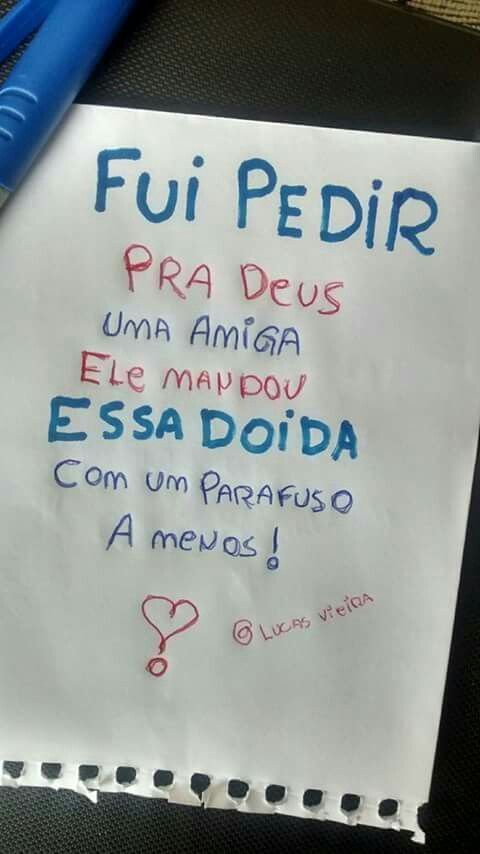 FUi PEDiR
PRA DeuS
UMA AMiGA
ELe MANDOU
ESSA DOiDA
Com um PARAFUSO
A menos!
@LUCAS VieiRA